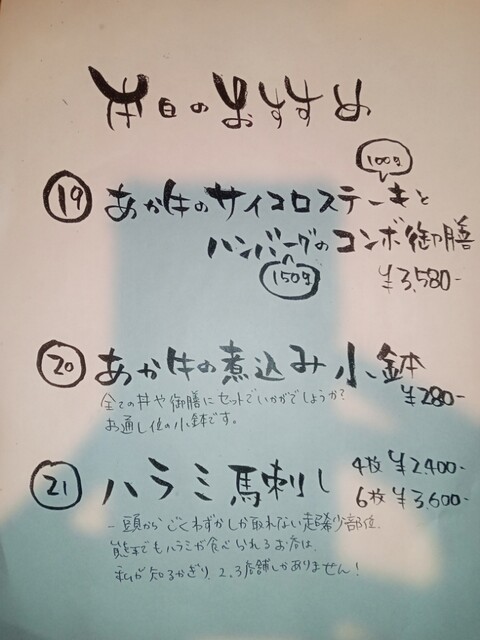 本日のおすすめ
100g
⑲ あか牛のサイコロステーキと
ハンバーグのコンボ御膳
150g
¥3,580-
⑳ あか牛の煮込み小鉢
¥280-
全ての丼や御膳にセットでいかがでしょうか?
お通し位の小鉢です。
㉑ ハラミ馬刺し 4枚 ¥2,400-
6枚 ¥3,600-
一頭からごくわずかしか取れない超稀少部位、
熊本でもハラミが食べられるお店は、
私が知るかぎり、2.3店舗しかありません!